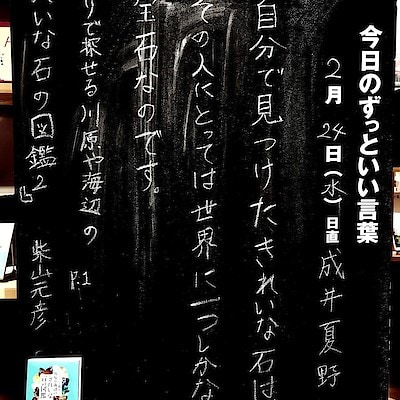 今日のずっといい言葉
2月24日(水)日直 成井夏野
自分で見つけたきれいな石は
その人にとっては世界に一つしかな
宝石なのです。
りで探せる川原や海辺の
れいな石の図鑑2』 柴山元彦
P.1